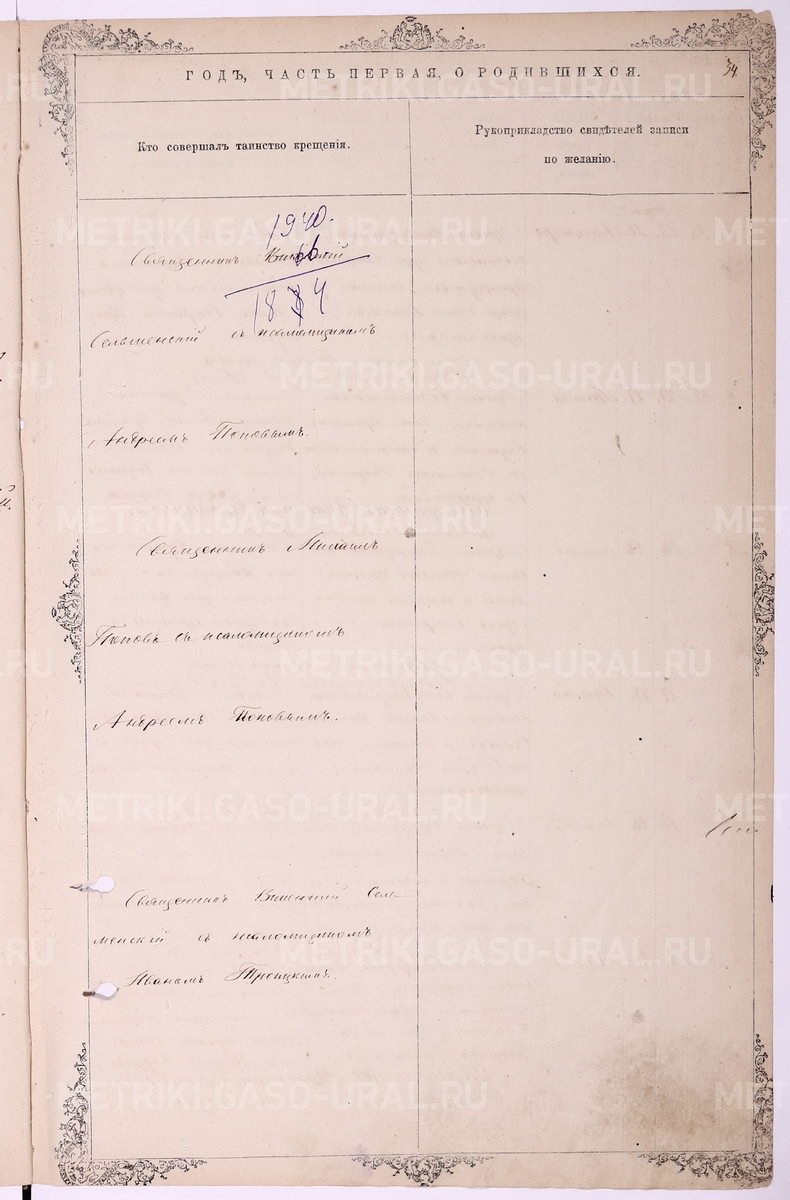 ГОДЪ, ЧАСТЬ ПЕРВАЯ, О РОДИВШИХСЯ.
34
Кто совершалъ таинство крещенія.
Рукоприкладство свидѣтелей записи
по желанію.
1940.
66
1874
Священникъ
съ псаломщикомъ
Андреемъ Поповымъ.
Священникъ Михаилъ
Поповъ съ псаломщикомъ
Андреемъ Поповымъ.
Священникъ
менскій съ псаломщикомъ
Иваномъ Троицкимъ.
METRIKI.GASO-URAL.RU